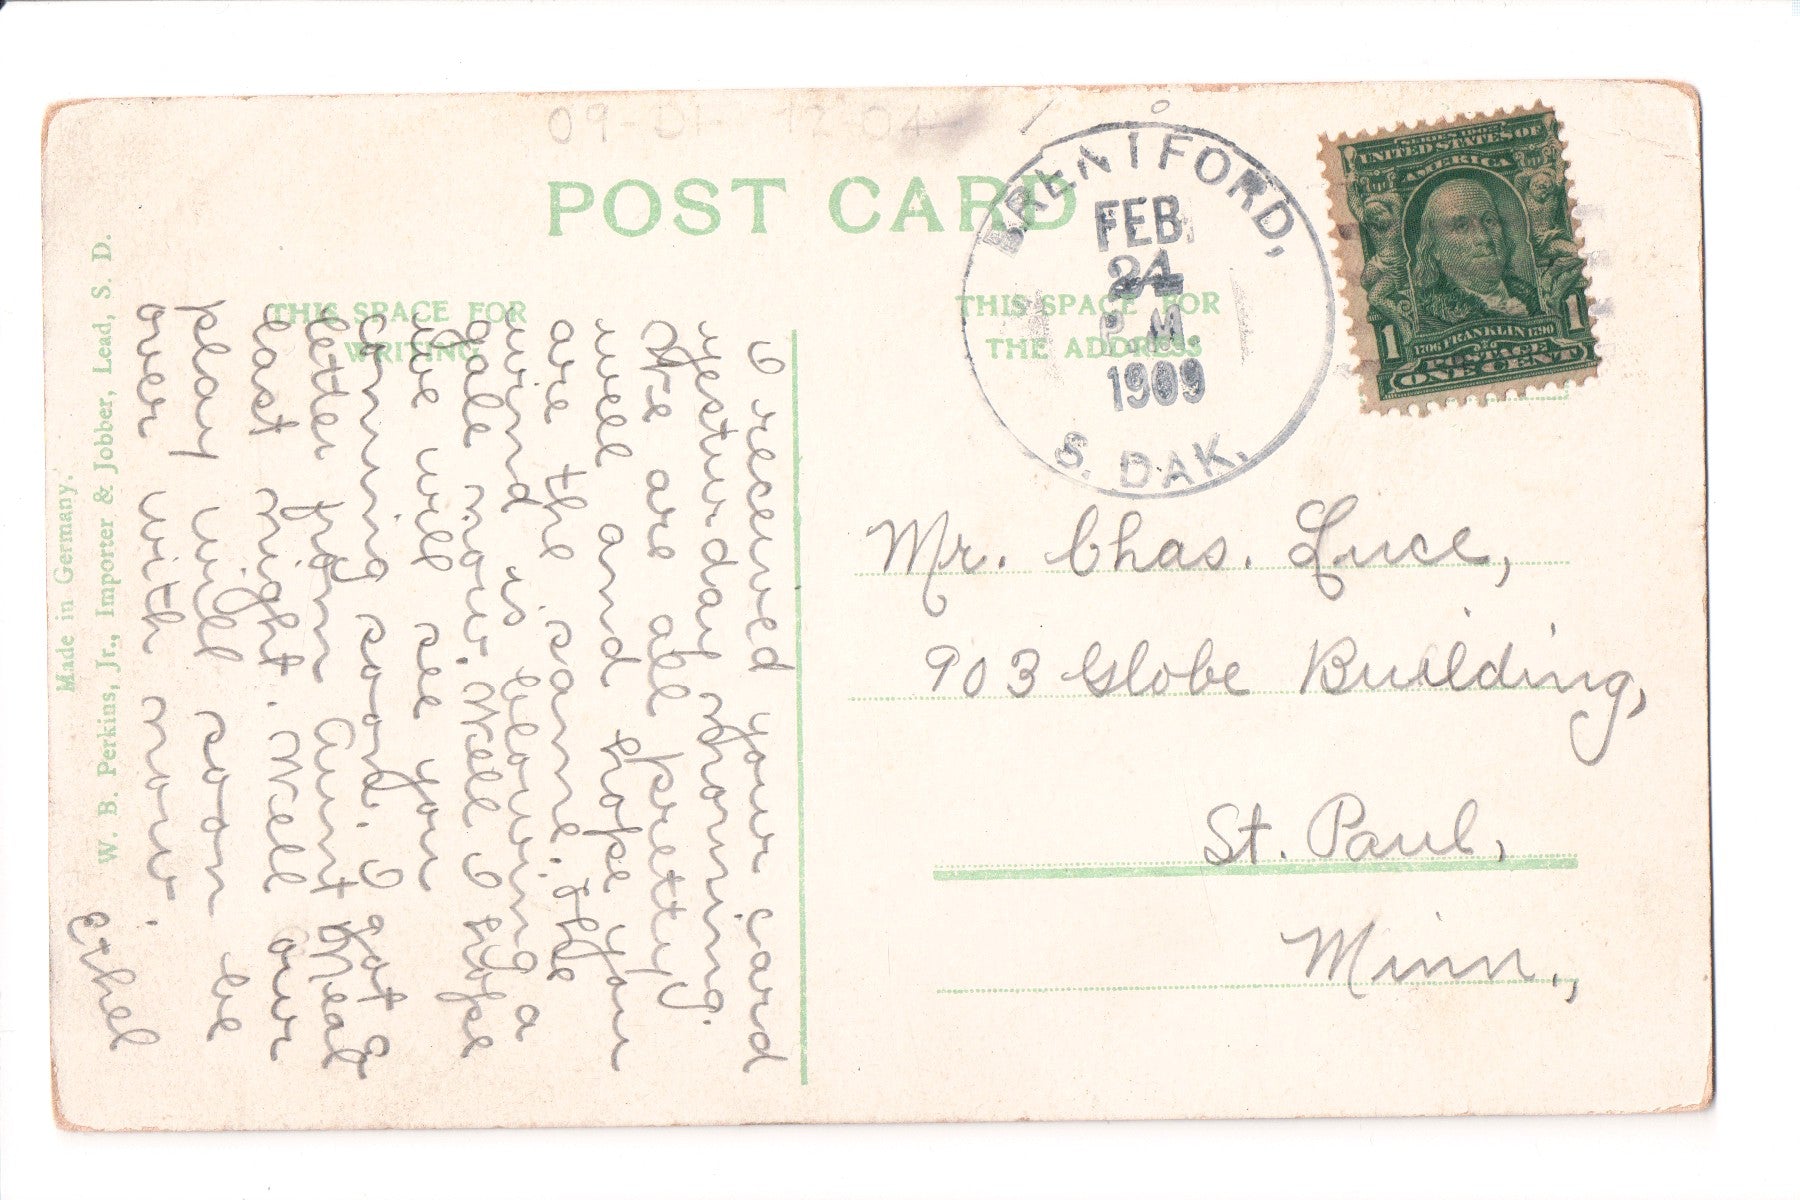 09-01-12-04
POST CARD
THIS SPACE FOR
WRITING
THIS SPACE FOR
THE ADDRESS
BRENTFORD,
FEB
24
P.M.
1909
S. DAK.
SERIES 1902
UNITED STATES OF
AMERICA
1706 FRANKLIN 1790
POSTAGE
1 1
ONE CENT
Mr. Chas. Luce,
903 Globe Building,
St. Paul,
Minn.,
I received your card
yesturday morning.
We are all pretty
well and hope you
are the same. The
wind is blowing a
gale now. Well I hope
we will see you
coming soon. I got a
letter from Aunt Meal
last night. Well our
play will soon be
over with now.
Ethel
Made in Germany.
W. B. Perkins, Jr., Importer & Jobber, Lead, S. D.